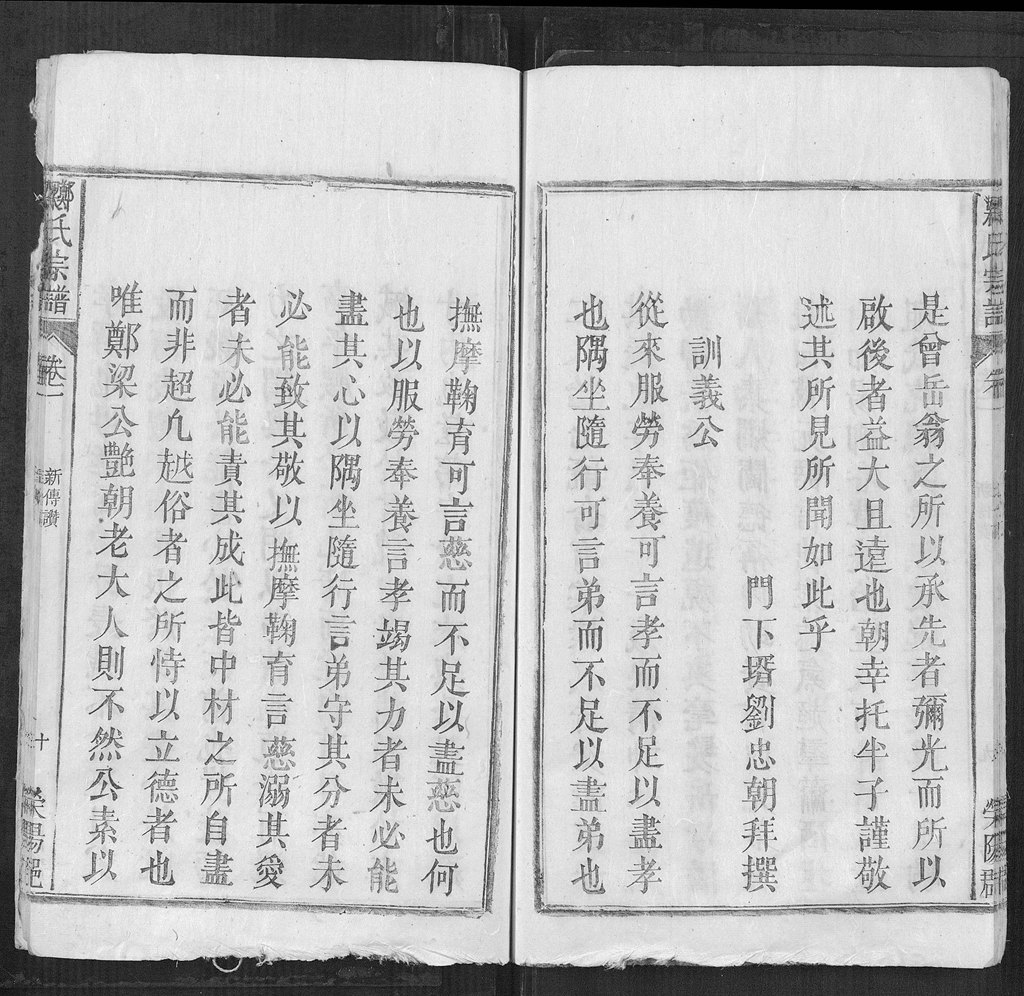 氏宗譜
卷一
榮陽郡
是曾岳翁之所以承先者彌光而所以
啟後者益大且遠也朝幸托半子謹敬
述其所見所聞如此乎
門下壻劉忠朝拜撰
訓義公
從來服勞奉養可言孝而不足以盡孝
也隅坐隨行可言弟而不足以盡弟也
撫摩鞠育可言慈而不足以盡慈也何
也以服勞奉養言孝竭其力者未必能
盡其心以隅坐隨行言弟守其分者未
必能致其敬以撫摩鞠育言慈溺其愛
者未必能責其成此皆中材之所自盡
而非超凢越俗者之所恃以立德者也
唯鄭梁公艷朝老大人則不然公素以
鄭氏宗譜
卷一
新傳讚
十